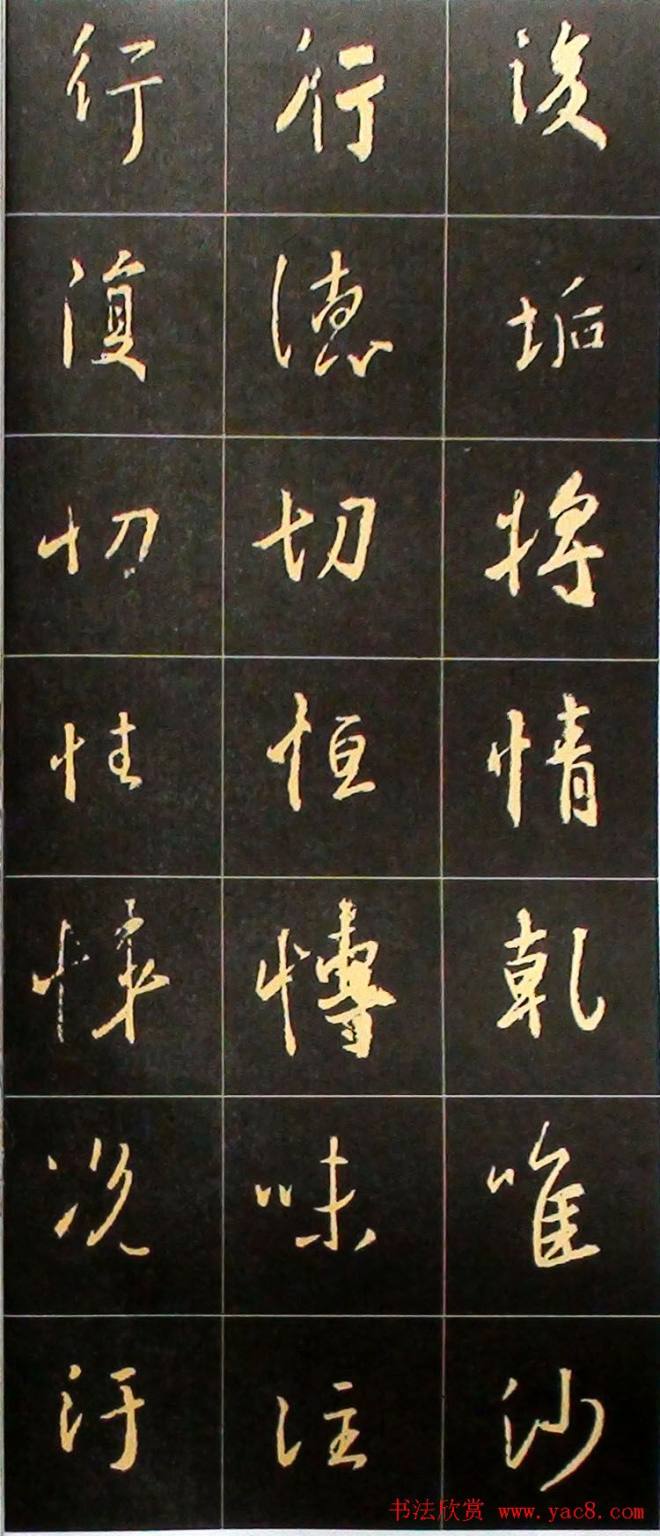 後垢将情乾唯沙
行德切恒愽味注
行復切性懷况汙
书法欣赏 www.yac8.com